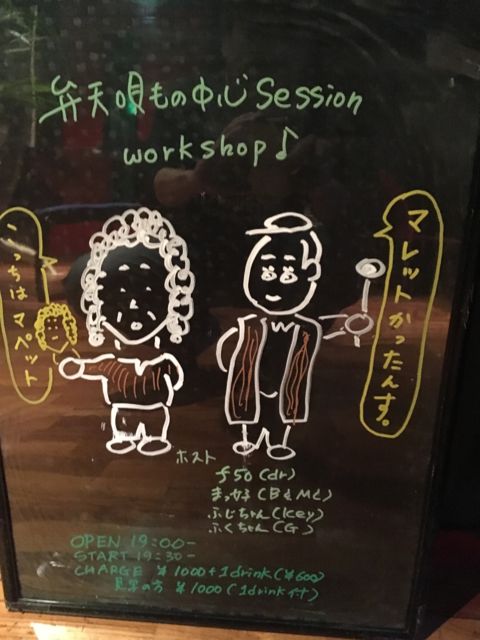 弁天唄もの中心 Session
workshop♪
マレットかったんす。
こっちはマペット
ホスト
f50 (dr)
まっかる (B & Mc)
ふじちゃん (Key)
ふくちゃん (G)
OPEN 19:00-
START 19:30-
CHARGE ¥1000+1drink (¥600)
見学の方 ¥1000 (1drink付)